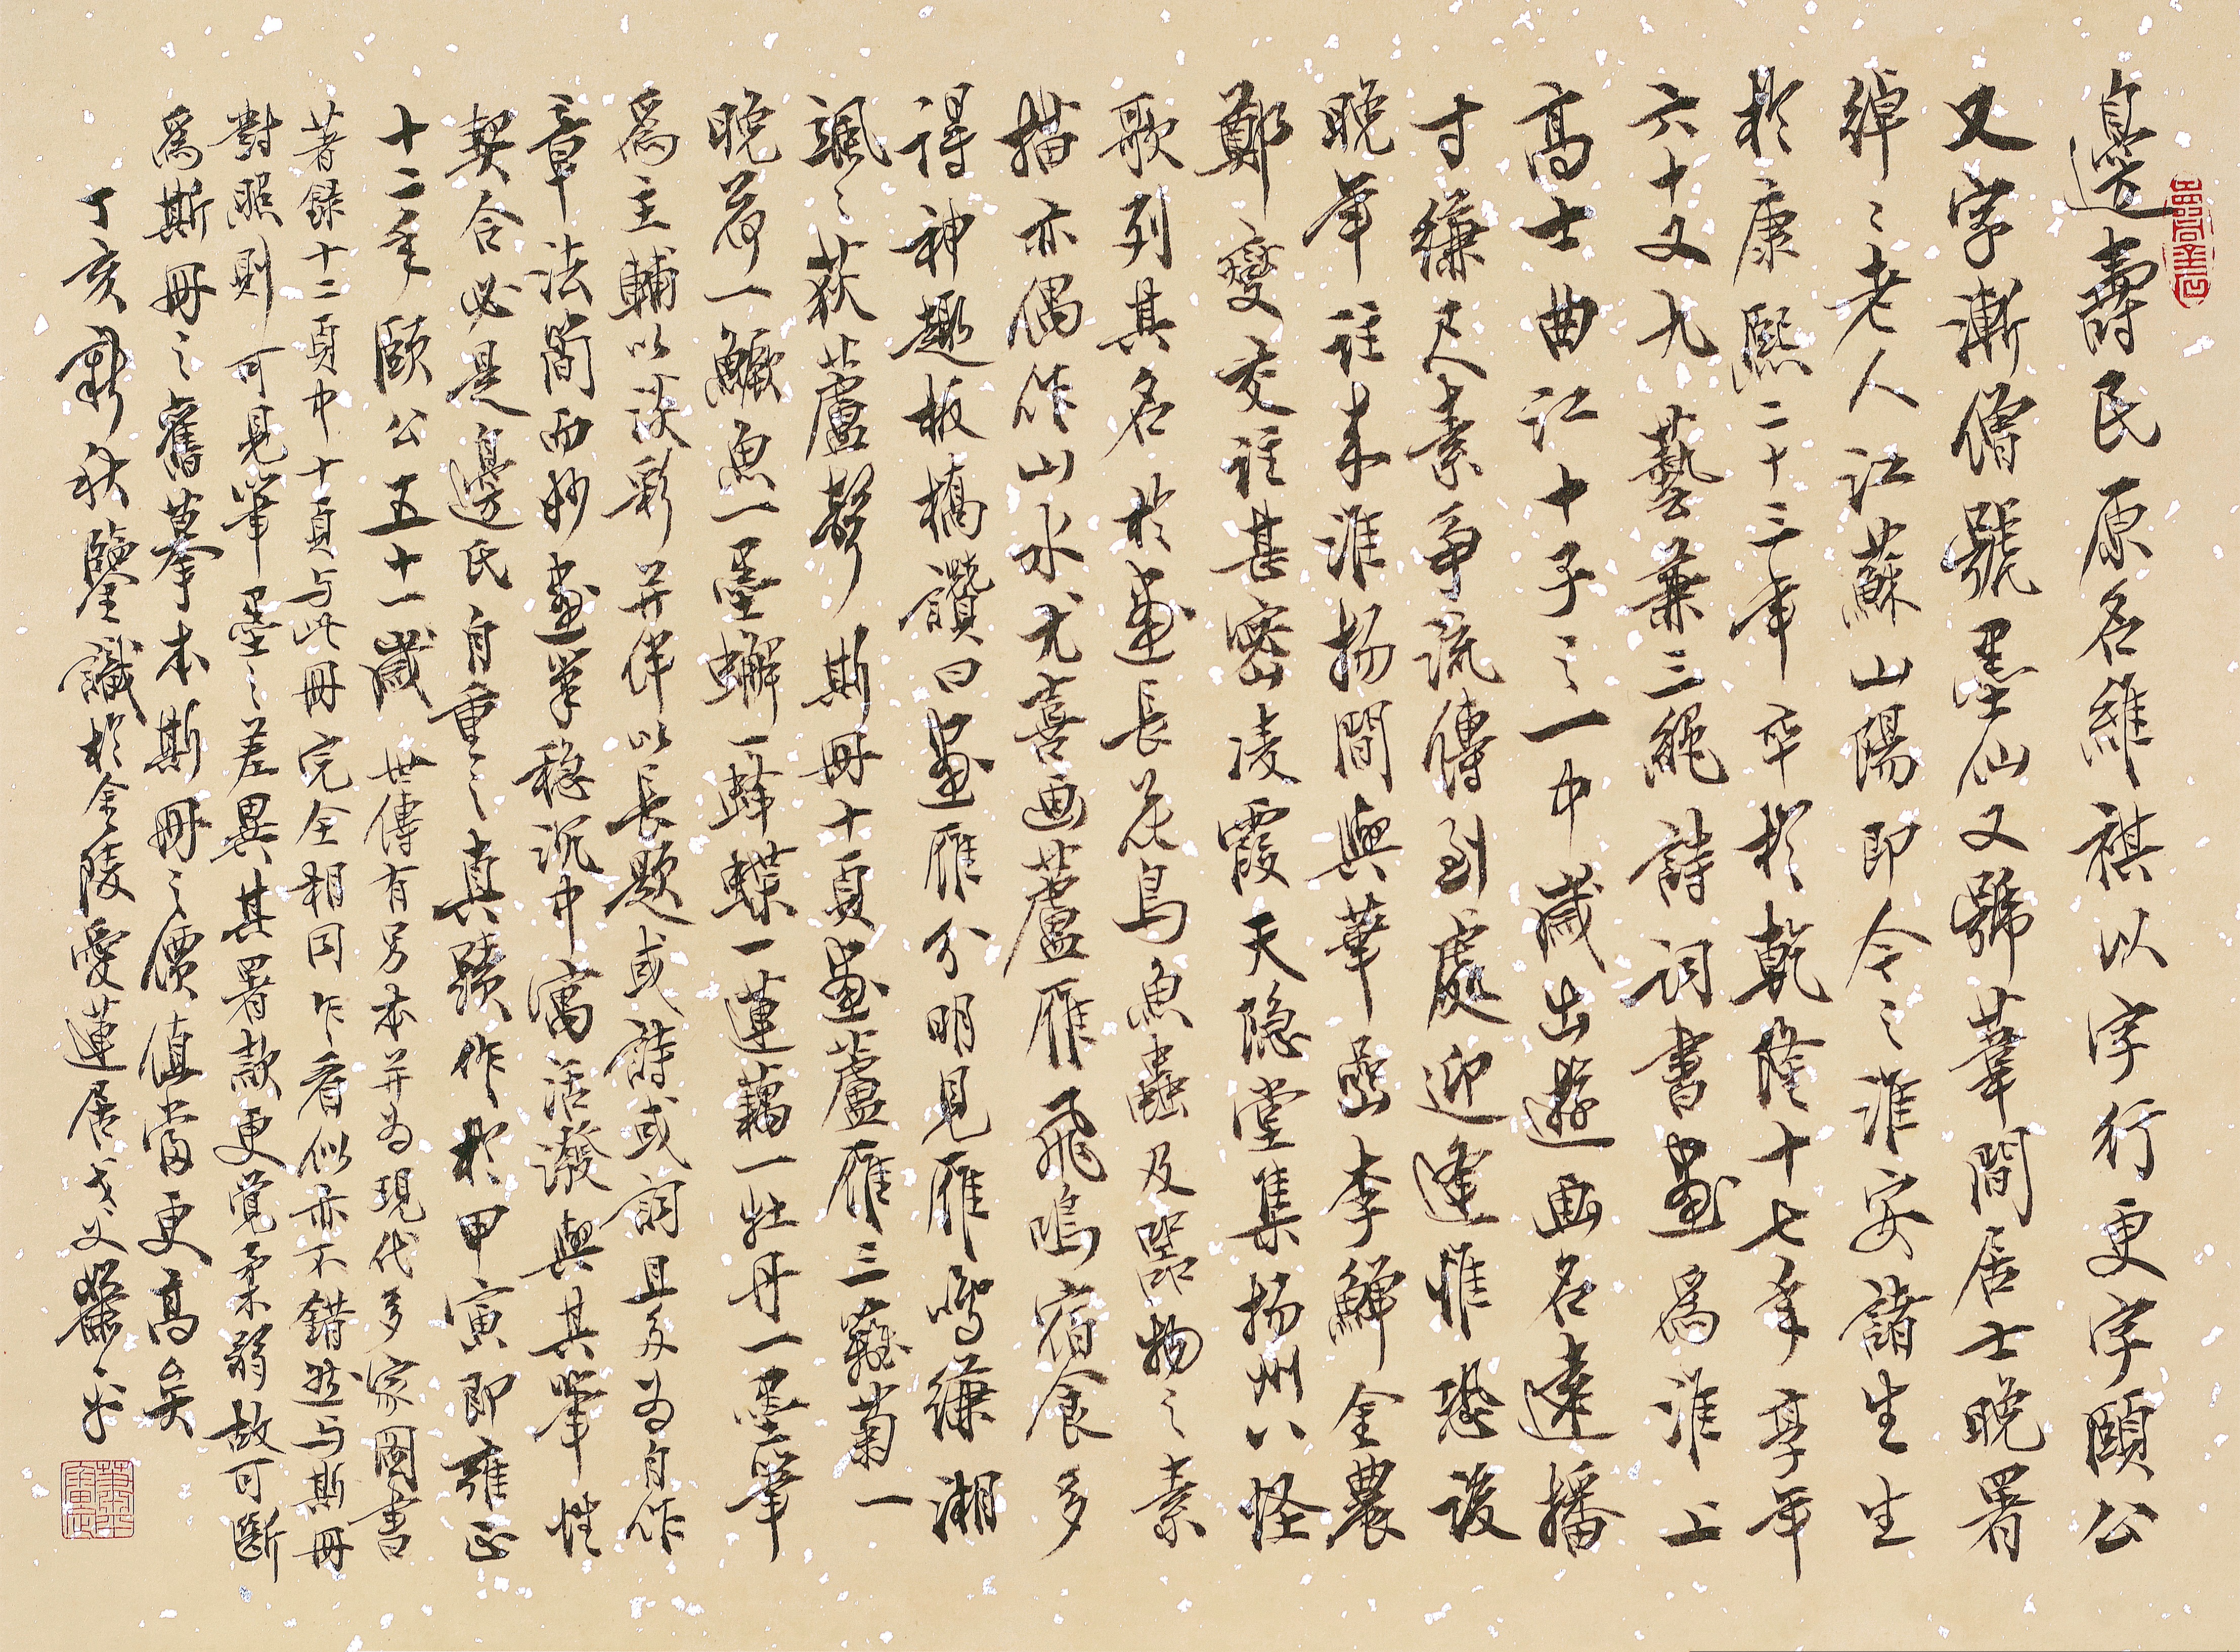 邊壽民原名維祺以字行更字頤公
又字漸僧號墨仙又號葦間居士晚署
綽々老人江蘇山陽即今之淮安諸生生
於康熙二十三年卒於乾隆十七年享年
六十又九藝兼三絕詩詞書畫爲淮上
高士曲江十子之一中歲出遊画名遠播
寸縑尺素爭流傳到處迎逢惟恐後
晚年往来淮揚間與華嵒李鱓金農
鄭燮交往甚密凌霞天隐堂集揚州八怪
歌列其名於畫長花鳥魚蟲及器物之素
描亦偶作山水尤喜画蘆雁飛鳴宿食多
得神趣板橋讚曰畫雁分明見雁鳴縑湘
颯々荻蘆聲斯冊十頁畫蘆雁三籬菊一
晚荷一鱖魚一墨蠏一蜂蝶一蓮藕一牡丹一墨筆
爲主輔以淡彩并伴以長題或詩或詞且多为自作
章法簡而妙畫筆穩沉中寓活潑與其筆性
契合必是邊氏自重之真蹟作於甲寅即雍正
十二年頤公五十一歲世傳有另本并为現代多家圖書
著錄十二頁中十頁与此冊完全相同乍看似亦不錯然与斯冊
對照則可見筆墨之差異其署款更覺柔弱故可斷
爲斯冊之舊摹本斯冊之價值當更高矣
丁亥新秋鑒識於金陵愛蓮居